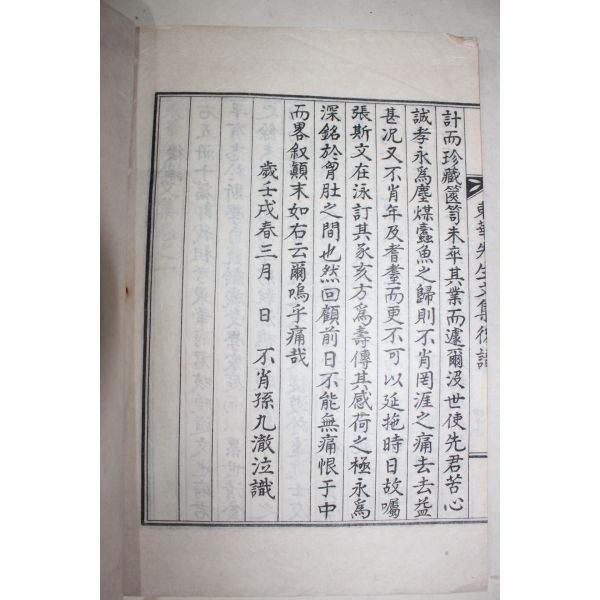 東華先生文集後識
計而珍藏篋笥未卒其業而遽爾沒世使先君苦心
誠孝永爲塵煤蠹魚之歸則不肖罔涯之痛去去益
甚况又不肖年及耆耋而更不可以延拖時日故囑
張斯文在泳訂其豕亥方爲壽傳其感荷之極永爲
深銘於胷肚之間也然回顧前日不能無痛恨于中
而畧叙顚末如右云爾嗚乎痛哉
歲壬戌春三月日不肖孫九澈泣識